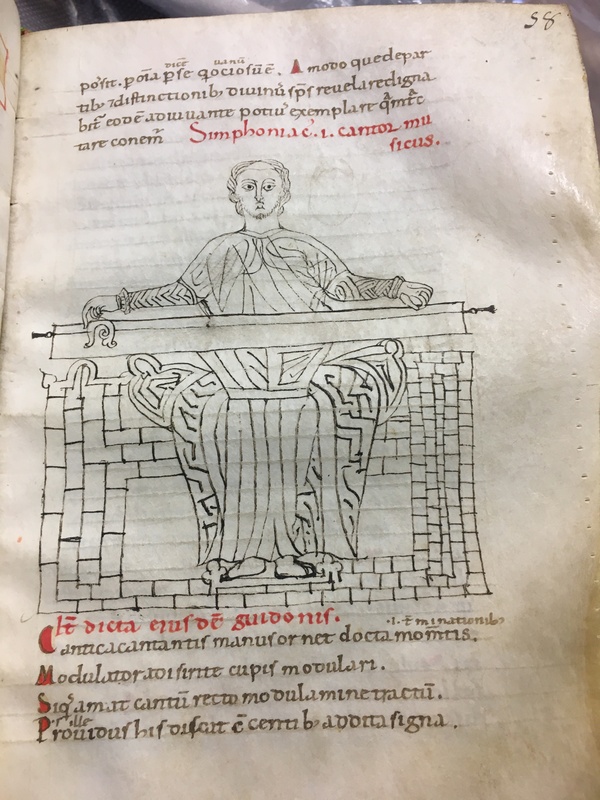 58
dicē uanū
posit. p oīa p se q ociosū ē. Amodo que de par
tib; ⁊ distinctionib; diuinū sp̄s reuelare digna
bit̄ eodē adiuuante potiu᾽ exemplare q̄m tr̄c
tare conem̄ Simphoniac᾽. .i. cantor mu
sicus.
It̄ dicta eiusdē guidonis. .i. t̄minationib;
Cantica cantantis manus ornet docta montis.
Modulator adi si rite cupis modulari.
Siq̄s amat cantū recto modulamine tractū.
s᾽ ille
Prouidus his discat c̄centib; addita signa.